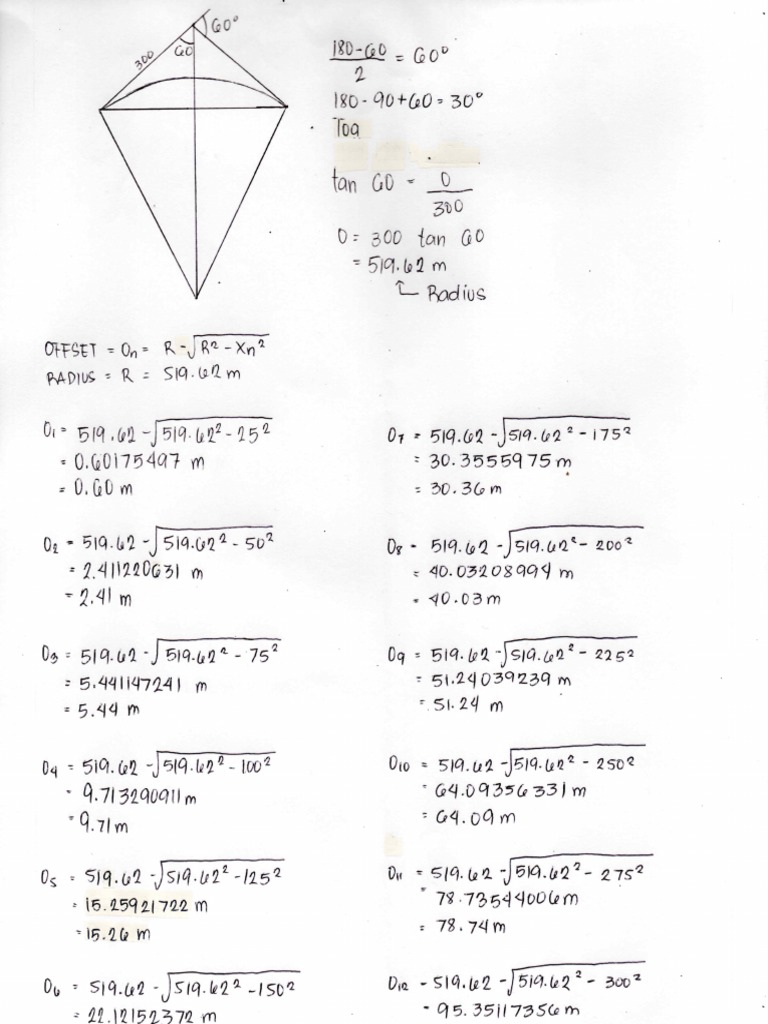 60°
300
60
180-60 / 2 = 60°
180-90+60=30°
Toa
tan 60 = O / 300
O = 300 tan 60
= 519.62 m
Radius
OFFSET = On = R-√R²-Xn²
RADIUS = R = 519.62 m
O1 = 519.62 -√519.62²-25²
= 0.60175497 m
= 0.60 m
O2 = 519.62 -√519.62² - 50²
= 2.411220631 m
= 2.41 m
O3 = 519.62 -√519.62² - 75²
= 5.441147241 m
= 5.44 m
O4 = 519.62 -√519.62² - 100²
= 9.713290911 m
= 9.71 m
O5 = 519.62 -√519.62² -125²
= 15.25921722 m
= 15.26 m
O6 = 519.62 -√519.62² -150²
= 22.12152372 m
O7 = 519.62 -√519.62² -175²
= 30.3555975 m
= 30.36 m
O8 = 519.62 -√519.62² - 200²
= 40.03208994 m
= 40.03 m
O9 = 519.62 -√519.62² - 225²
= 51.24039239 m
= 51.24 m
O10 = 519.62 -√519.62² - 250²
= 64.09356331 m
= 64.09 m
O11 = 519.62 -√519.62² - 275²
= 78.73544006 m
= 78.74 m
O12 = 519.62 -√519.62² - 300²
= 95.35117356 m